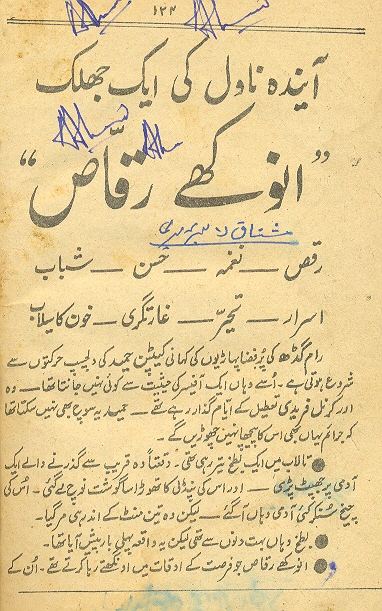 ۱۲۴
آیندہ ناول کی ایک جھلک
”انوکھے رقّاص“
مشتاق لائبریری
رقص — نغمہ — حُسن — شباب
اسرار — تحیّر — غارتگری — خون کا سیلاب
رام گڈھ کی پُرفضا پہاڑیوں کی کہانی کیپٹن حمید کی دلچسپ حرکتوں سے
شروع ہوتی ہے۔ اُسے وہاں ایک آفیسر کی حیثیت سے کوئی نہیں جانتا تھا — وہ
اور کرنل فریدی تعطیل کے ایّام گذار رہے تھے — حمید یہ سوچ بھی نہیں سکتا تھا
کہ جرائم یہاں بھی اس کا پیچھا نہیں چھوڑیں گے۔
● تالاب میں ایک بطخ تیر رہی تھی۔ دفعتاً وہ قریب سے گذرنے والے ایک
آدمی پر جھپٹ پڑی — اور اس کی پنڈلی کا تھوڑا سا گوشت نوچ لے گئی۔ اُس کی
چیخ سُنکر کئی آدمی وہاں آگئے — لیکن وہ تین منٹ کے اندر ہی مر گیا۔
● بطخ وہاں بہت دنوں سے تھی لیکن یہ واقعہ پہلی بار پیش آیا تھا۔
● انوکھے رقاص جو فرصت کے اوقات میں اونگھتے رہا کرتے تھے۔ اُن کے